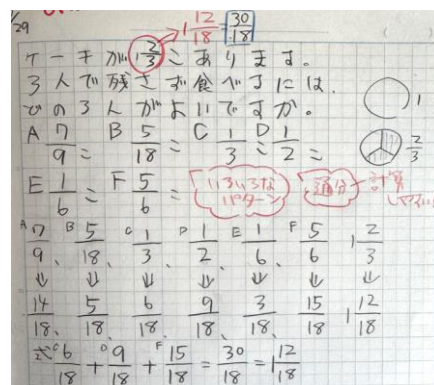 /29
1 12/18 = 30/18
ケーキが1 2/3こあります。
3人で残さず食べるには、
どの3人がよいですか。
A 7/9 = B 5/18 = C 1/3 = D 1/2 =
1
2/3
E 1/6 = F 5/6 =
いろいろなパターン
通分
計算
A 7/9、B 5/18、C 1/3、D 1/2、E 1/6、F 5/6 1 2/3
⇓ ⇓ ⇓ ⇓ ⇓ ⇓ ⇓
14/18、5/18、6/18、9/18、3/18、15/18 1 12/18
式 C 6/18 + D 9/18 + F 15/18 = 30/18 = 1 12/18